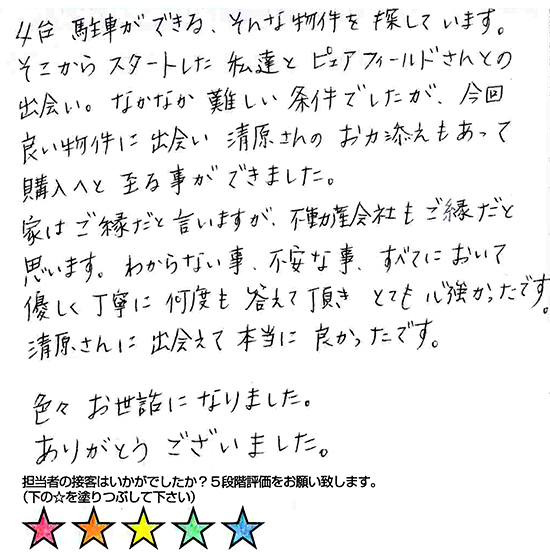 4台 駐車ができる、そんな物件を 探しています。
そこから スタートした 私達と ピュアフィールドさんとの
出会い。なかなか 難しい 条件でしたが、今回
良い物件に 出会い 清原さんの お力添えもあって
購入へと 至る事ができました。
家は ご縁だと 言いますが、不動産会社も ご縁だと
思います。わからない事、不安な事、すべてにおいて
優しく 丁寧に 何度も 答えて頂き とても 心強かったです。
清原さんに 出会えて 本当に 良かったです。
色々 お世話になりました。
ありがとう ございました。
担当者の接客はいかがでしたか？５段階評価をお願い致します。
（下の☆を塗りつぶして下さい）